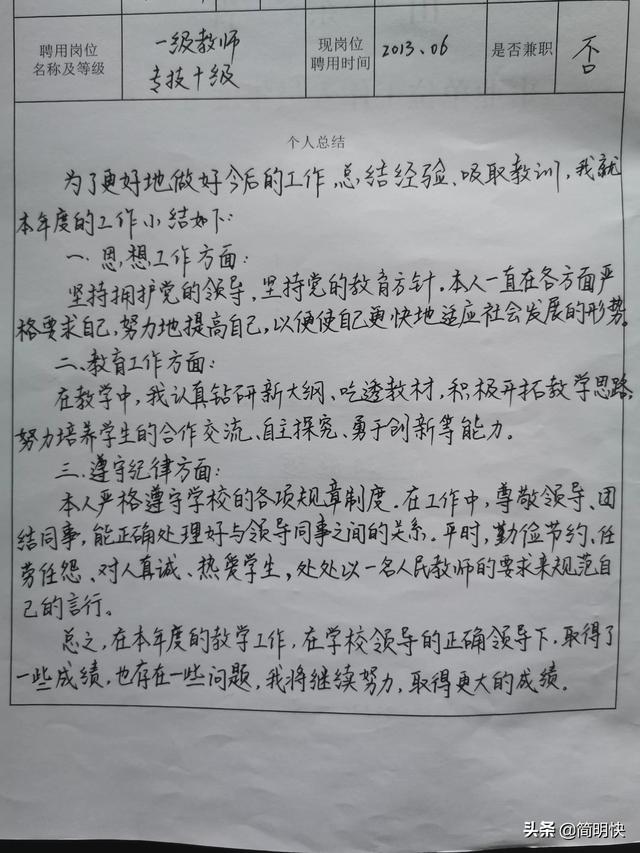 聘用岗位
名称及等级
一级教师
专技十级
现岗位
聘用时间
2013、06
是否兼职
否
个人总结
为了更好地做好今后的工作,总结经验、吸取教训,我就
本年度的工作小结如下:
一、思想工作方面:
坚持拥护党的领导,坚持党的教育方针。本人一直在各方面严
格要求自己,努力地提高自己,以便使自己更快地适应社会发展的形势。
二、教育工作方面:
在教学中,我认真钻研新大纲、吃透教材,积极开拓教学思路,
努力培养学生的合作交流、自主探究、勇于创新等能力。
三、遵守纪律方面:
本人严格遵守学校的各项规章制度。在工作中,尊敬领导、团
结同事,能正确处理好与领导同事之间的关系。平时,勤俭节约、任
劳任怨、对人真诚、热爱学生,处处以一名人民教师的要求来规范自
己的言行。
总之,在本年度的教学工作,在学校领导的正确领导下,取得了
一些成绩,也存在一些问题,我将继续努力,取得更大的成绩。
头条 @简明快